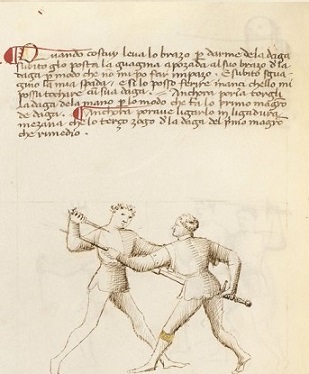 Quando costuy leva lo brazo p darme de la daga
subito glo posta la guagina apozada al suo brazo d la
daga p modo che no mi po far impazo. E subito sgua-
gino la mia spada / e si lo posso ferire inanci chello mi
possa tochare cu sua daga. Anchora poria torgli
la daga de la mano p lo modo che fa lo primo magro
de daga. Anchora poraue ligarlo in ligadura
mezana che lo terço zogo d la daga del pmo magro
che rimedio.